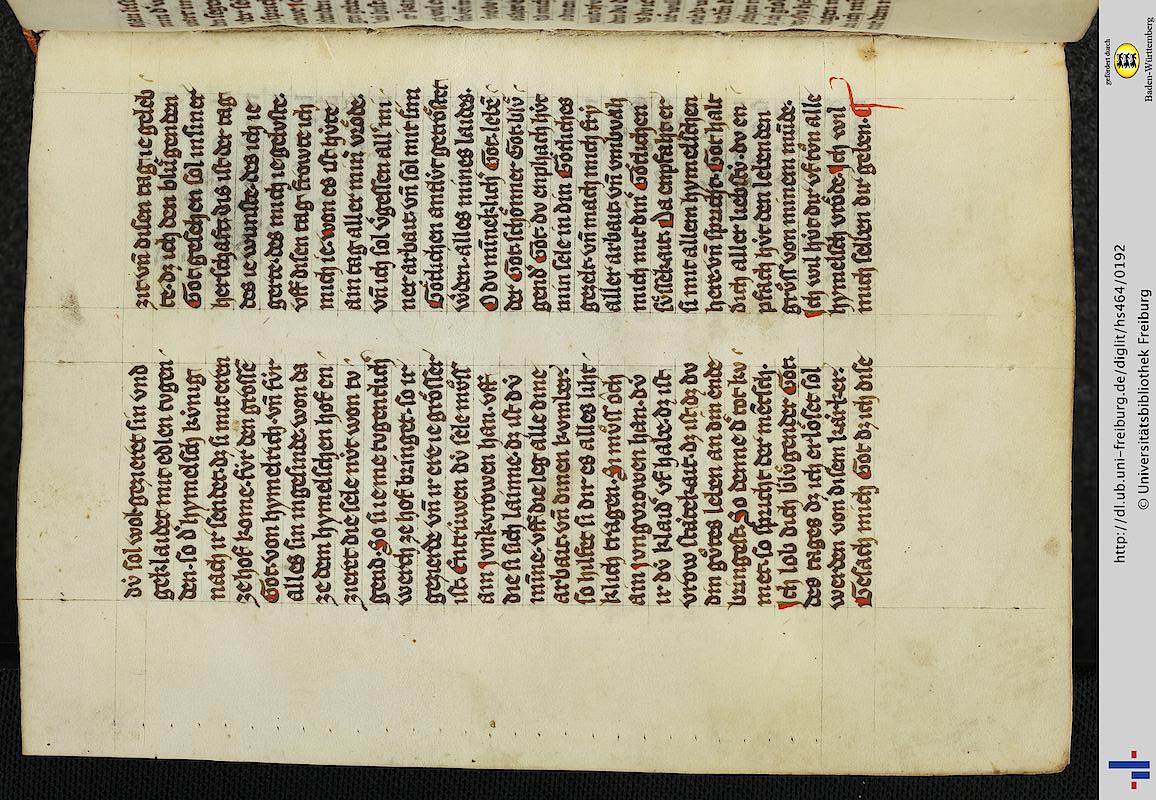 dú sol wol gezieret sin vnd
geklaidet mit edlen tvgen
den. so d' hymelsch kúnig
nach ir sendet. dz si mit eren
ze hoff kome. für den grosse
Got von hymelrich. vn̄ für
alles sin ingesinde. won da
ze dem hymelschen hof en
zieret die sele nivt won tv
gend. So si ie me tvgentlich
werch ze hof bringet. so ir
gezierde vn̄ ir ere ie grösser
ist. Entrúwen dú sele mv̊ss
ain junkvrowen han. vff
die si sich laime. dz ist dú
min̄e. vff die leg alle dine
arbait. vn̄ dinen kvmber.
so hilfet si dir es alles liht
klich tragen. Si mv̊ss och
ain jungvrowen han. dú
ir dú klaid' vf habe. dz ist
vrow stätekait. dz ist dz dv
din gv̊tes leben an din ende
bringest. So denne d' tot kv
met. so spricht der mentsch.
Ich lob dich blv̊gender Got.
des tages dz ich erlöset sol
werden von disem karker.
Gesach mich Got dz ich dise
zit vn̄ disen tag ie geleb
te. dz ich den blv̊genden
Got gesehen sol in siner
herschaft. das ist der tag
des ie wunste. des ich ie
gerte. des mich ie geluste.
vff disen tag frowte ich
mich ie. won es ist húte
ain tag aller miner vröde.
vn̄ ich sol v'gessen all' mi
ner arbait. vn̄ sol mit sim
Götlichen antlút getröstet
w'den. alles mines laides.
O dv min̄eklich' Got. lebē
der Got. schöner Got. blv̊
gend' Got. dv enphach hút
min sele in din Götliches
gezelt. vn̄ mach mich fry
aller arbait. vn̄ vmbvah
mich mit din' Götlichen
sv̊ssekait. Da enpfahet er
si mit allem hymelschen
here. vn̄ spricht. Got halt
dich aller liebstú. dv en
pfach hút den lebenden
grv̊ss von minem mvnde.
Ich wil hút dir vf tv̊n alle
hymelsch vröde. Ich wil
mich selben dir geben.
http://dl.ub.uni-freiburg.de/diglit/hs464/0192
© Universitätsbibliothek Freiburg
gefördert durch
Baden-Württemberg